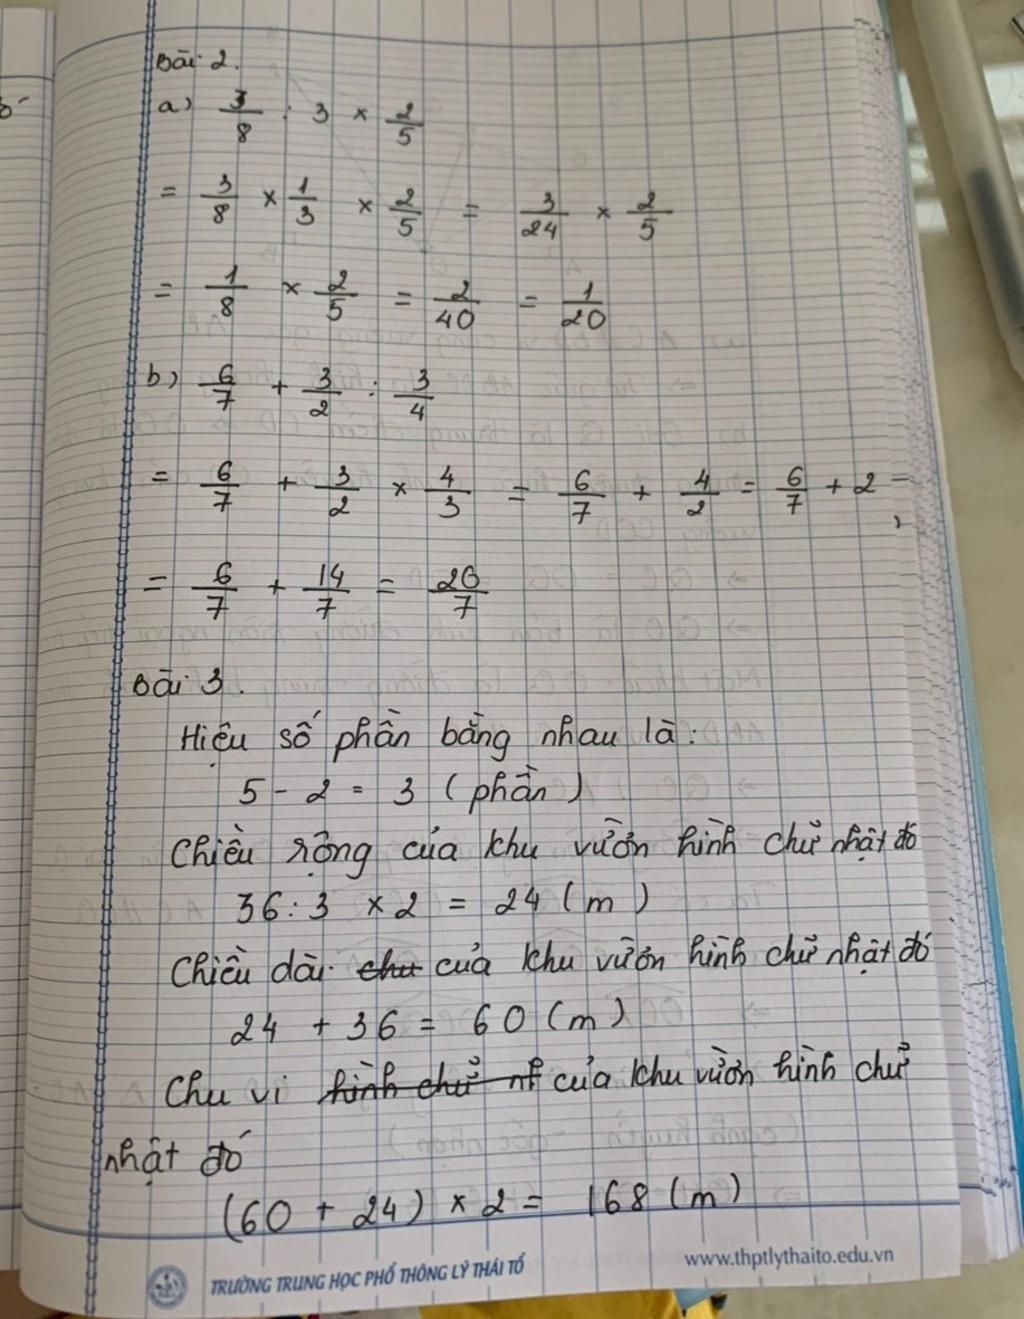 Bài 2.
a) 3/8 : 3 × 2/5
= 3/8 × 1/3 × 2/5 = 3/24 × 2/5
= 1/8 × 2/5 = 2/40 = 1/20
b) 6/7 + 3/2 : 3/4
= 6/7 + 3/2 × 4/3 = 6/7 + 4/2 = 6/7 + 2 =
= 6/7 + 14/7 = 20/7
Bài 3.
Hiệu số phần bằng nhau là:
5 - 2 = 3 (phần)
Chiều rộng của khu vườn hình chữ nhật đó
36 : 3 × 2 = 24 (m)
Chiều dài chu của khu vườn hình chữ nhật đó
24 + 36 = 60 (m)
Chu vi hình chữ nh của khu vườn hình chữ
nhật đó
(60 + 24) × 2 = 168 (m)
TRƯỜNG TRUNG HỌC PHỔ THÔNG LÝ THÁI TỔ
www.thptlythaito.edu.vn